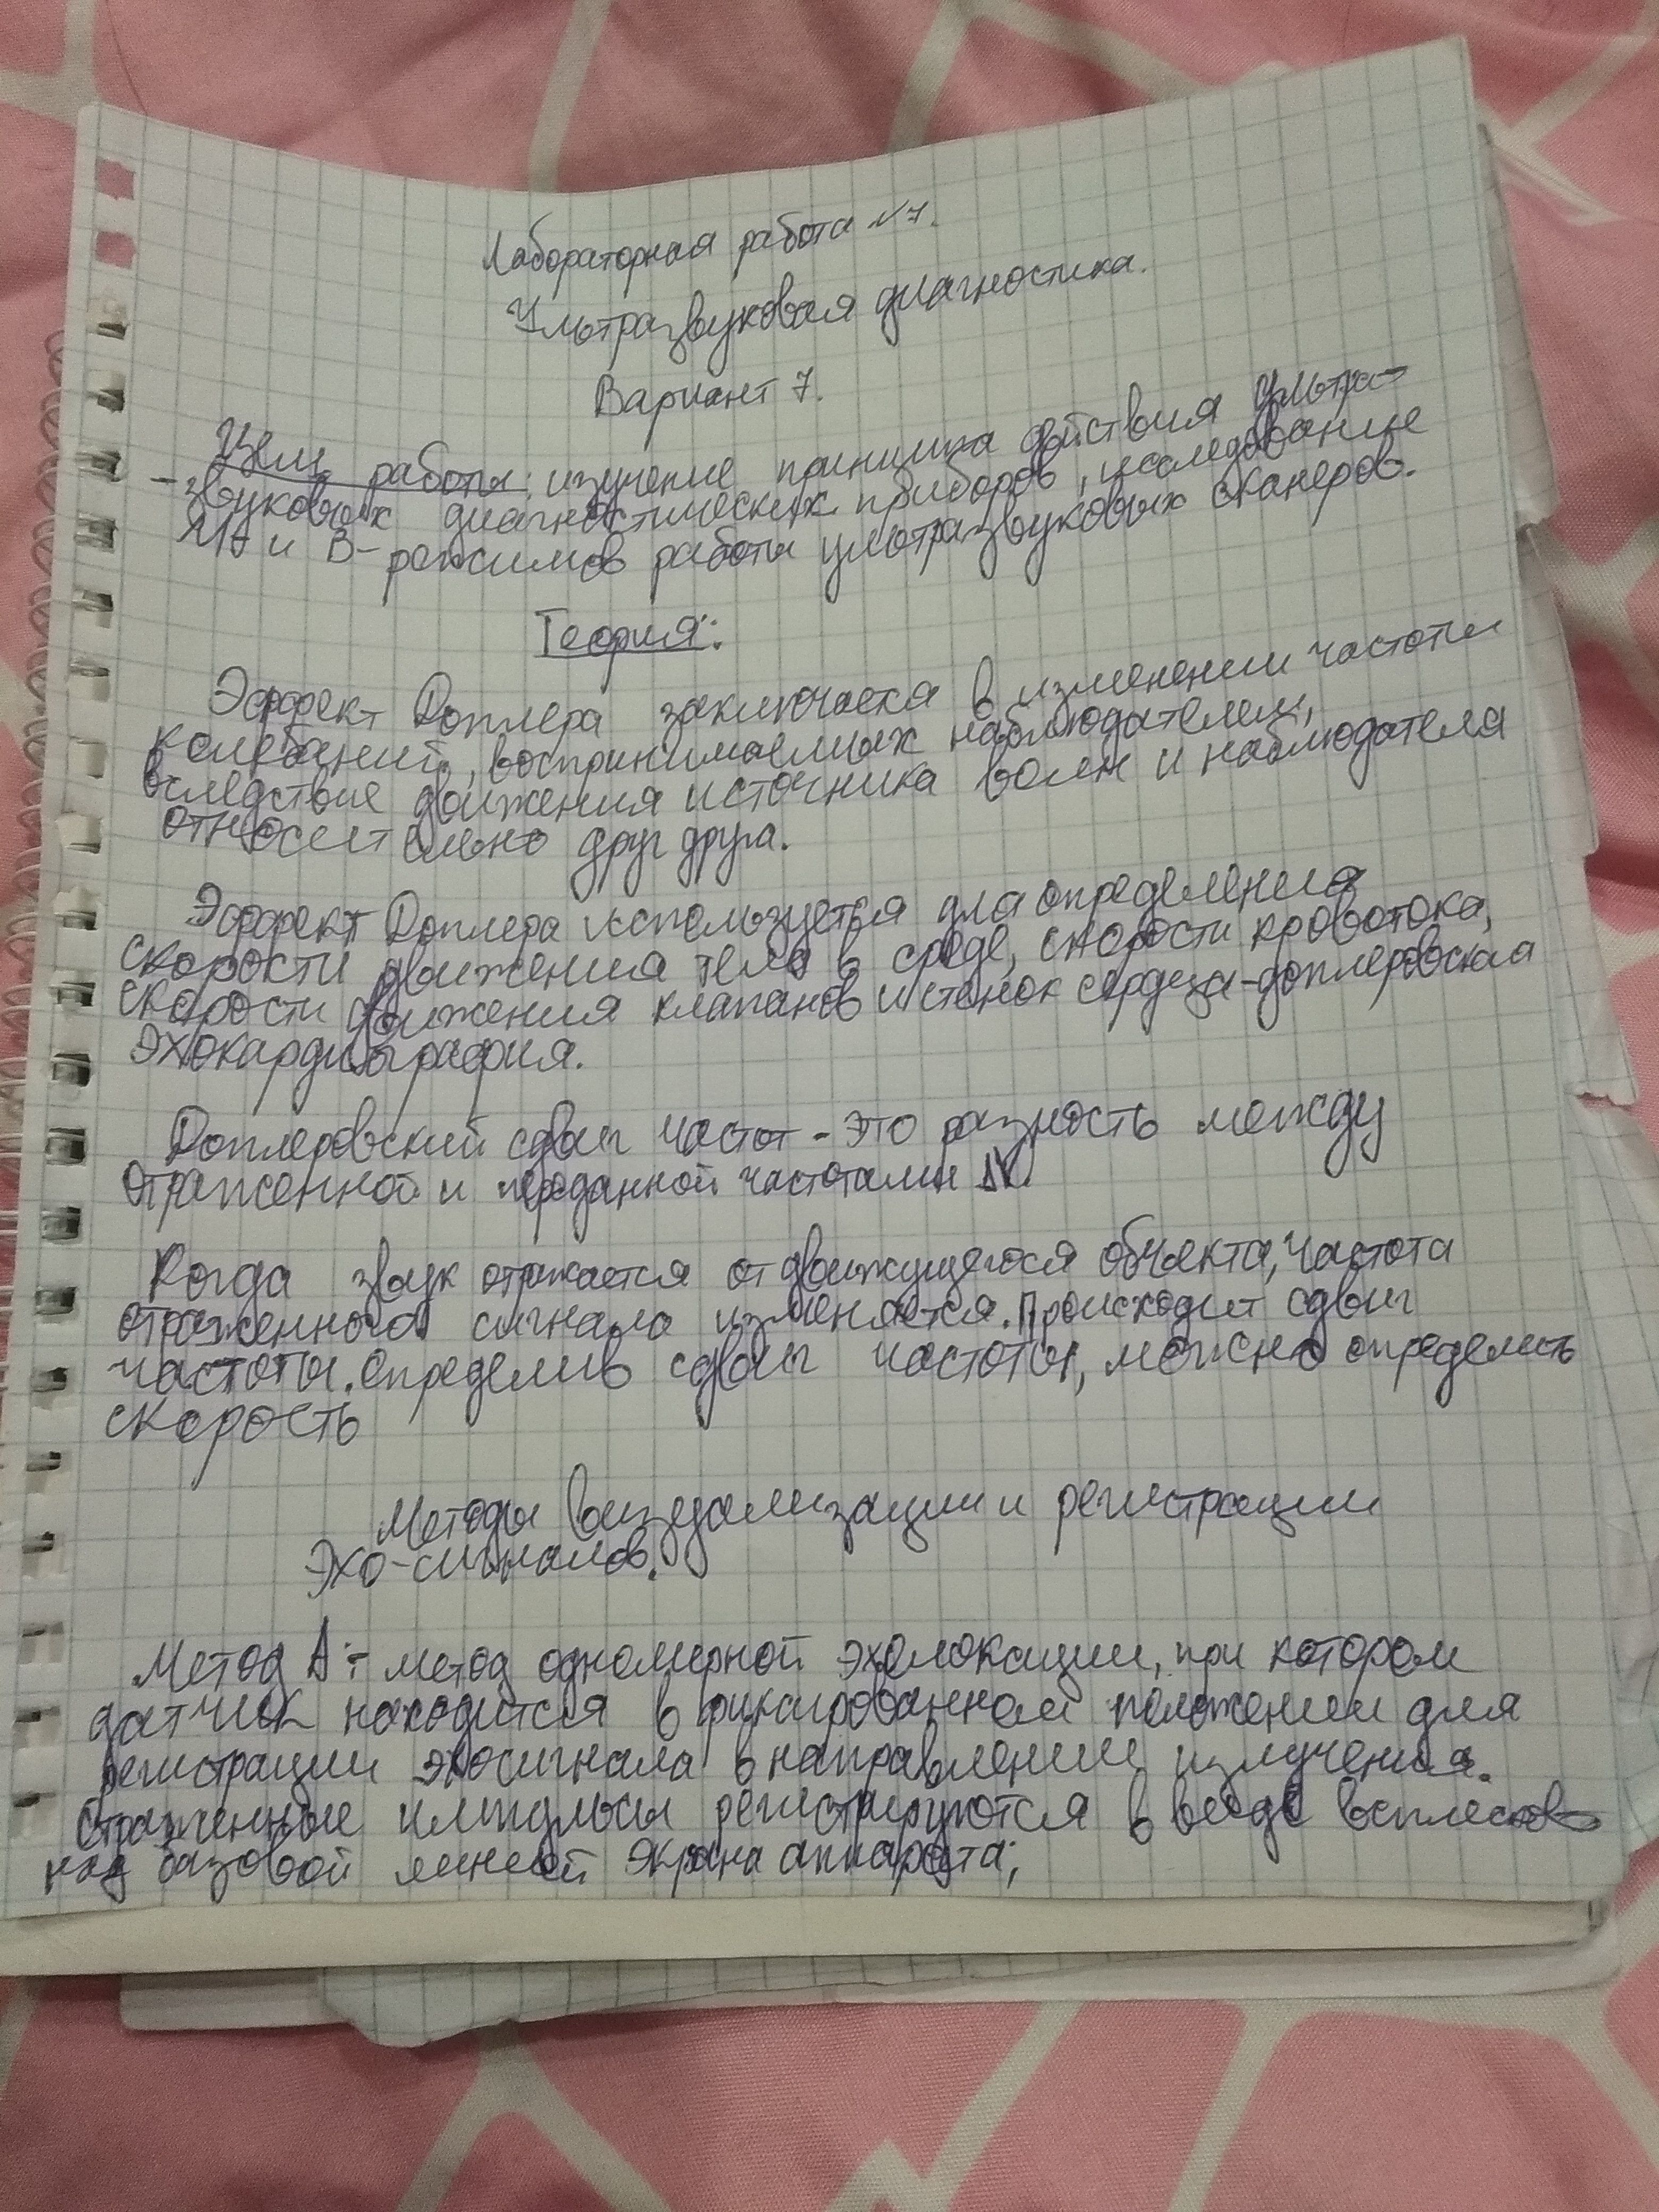 Лабораторная работа №7.
Ультразвуковая диагностика.
Вариант 7.
Цели работы: изучение принципа действия ультра-
-звуковых диагностических приборов, исследование
и В-режимов работы ультразвуковых сканеров.
Теория:
Эффект Доплера заключается в изменении частоты
колебаний, воспринимаемых наблюдателем,
вследствие движения источника волн и наблюдателя
относительно друг друга.
Эффект Доплера используется для определения
скорости движения тела в среде, скорости кровотока,
скорости движения клапанов и стенок сердца-доплеровская
эхокардиография.
Доплеровский сдвиг частот - это разность между
отраженной и переданной частотами
Когда звук отражается от движущегося объекта, частота
отраженного сигнала изменяется. Происходит сдвиг
частоты. Определив сдвиг частоты, можно определить
скорость
Методы визуализации и регистрации
эхо-сигналов.
Метод А:- метод одномерной эхолокации, при котором
датчик находится в фиксированном положении для
регистрации эхосигнала в направлении излучения.
Отраженные импульсы регистрируются в виде всплесков
над базовой линией экрана аппарата;